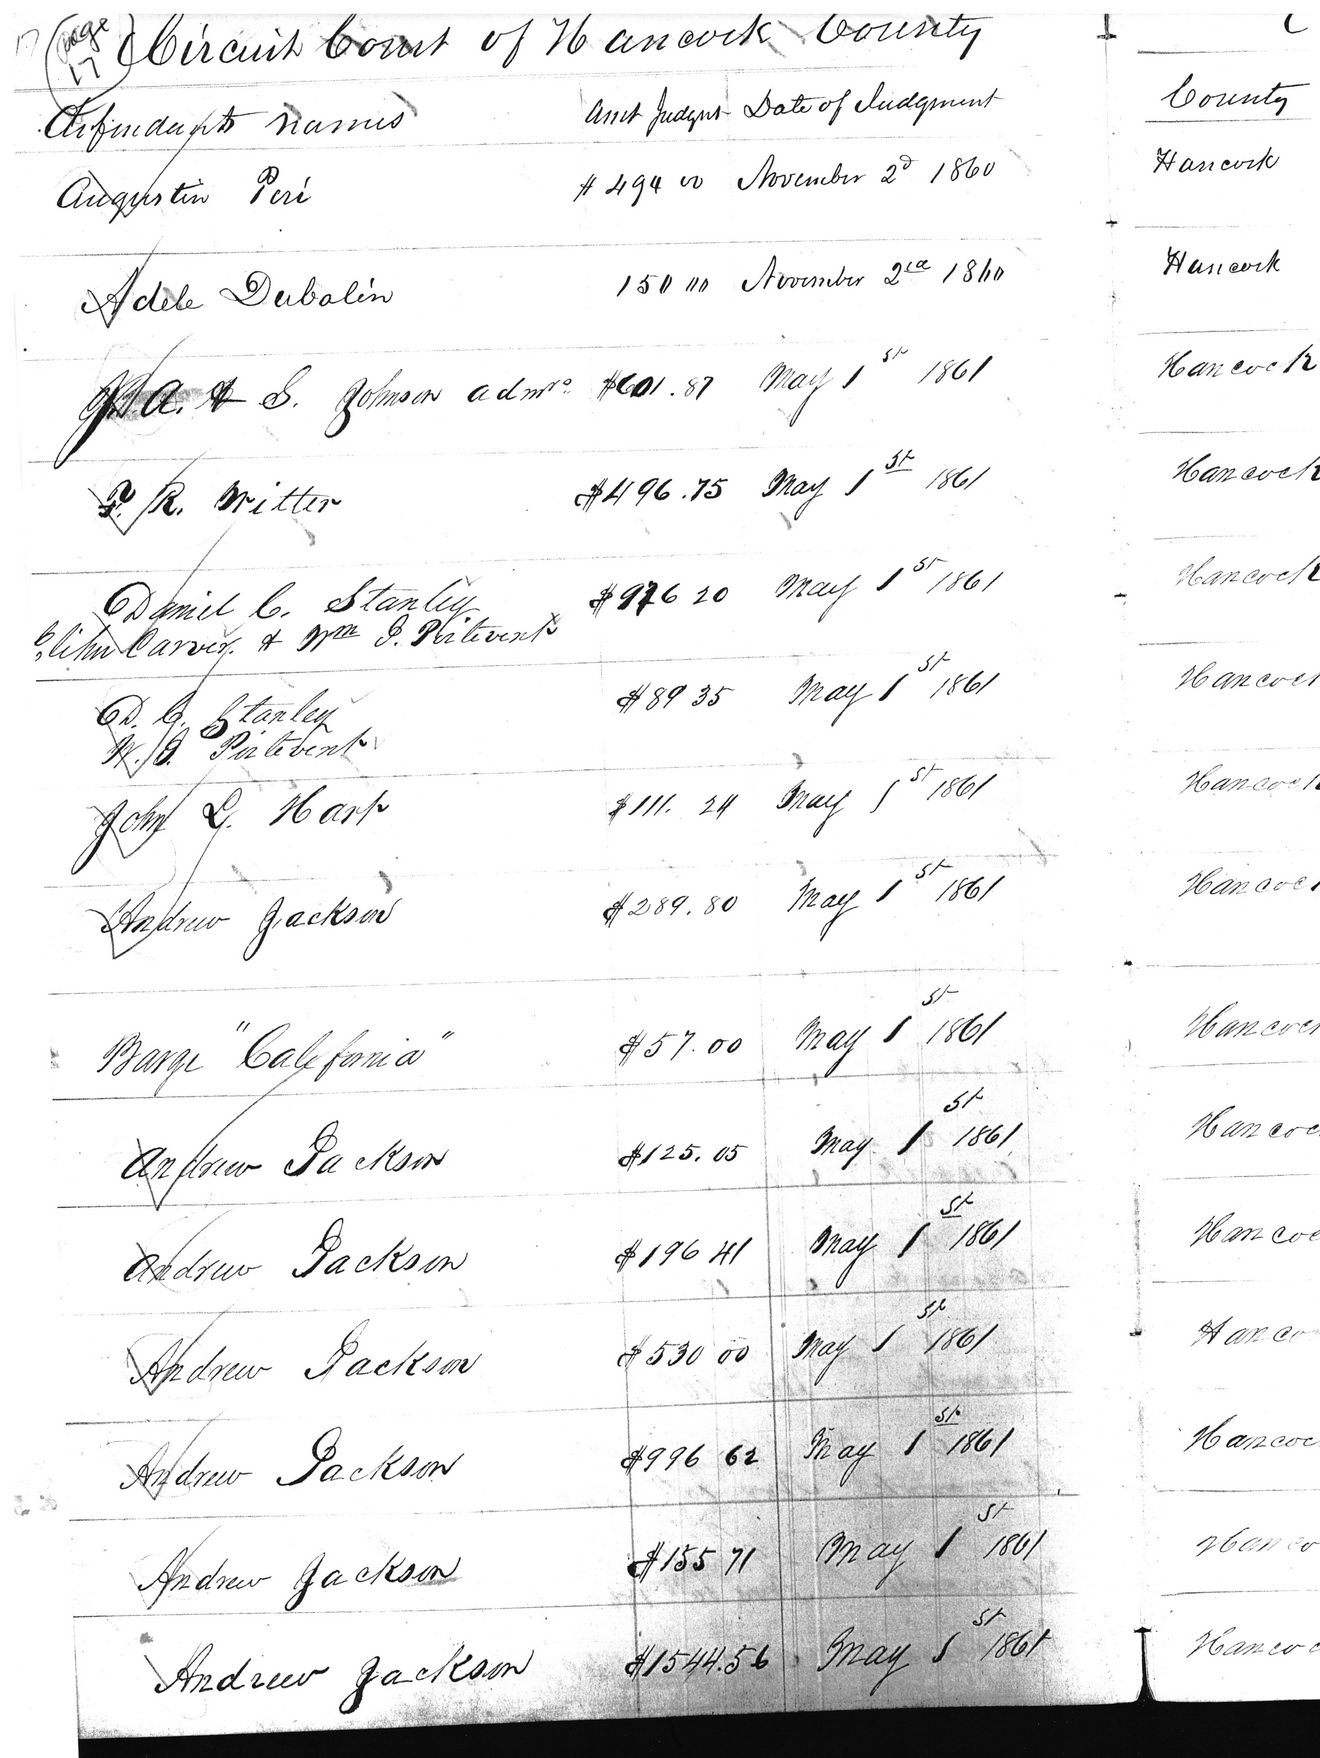 page 17
Circuit Court of Hancock County
County
Defendants names Amt Judgmt Date of Judgment
Augustin Peri $494 00 November 2d 1860 Hancock
Adele Dubalin 150 00 November 2nd 1860 Hancock
A. & S. Johnson admrs. $601.87 May 1st 1861 Hancock
R. Witter $496.75 May 1st 1861 Hancock
Daniel C. Stanley $976 20 May 1st 1861 Hancock
Carver & Wm J. Poitevent
D. C. Stanley $89 35 May 1st 1861 Hancock
W. J. Poitevent
John L. Hart $111. 24 May 1st 1861 Hancock
Andrew Jackson $289.80 May 1st 1861 Hancock
Barge "California" $57.00 May 1st 1861 Hancock
Andrew Jackson $125.05 May 1st 1861 Hancoc
Andrew Jackson $196 41 May 1st 1861 Hancoc
Andrew Jackson $530 00 May 1st 1861 Hanco
Andrew Jackson $996 62 May 1st 1861 Hancoc
Andrew Jackson $155 71 May 1st 1861 Hanco
Andrew Jackson $1544.56 May 1st 1861 Hancoc